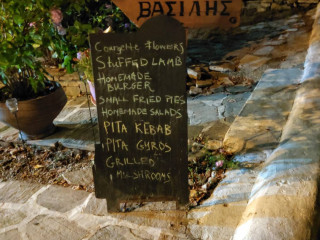 ΒΑΣΙΛΗΣ
Courgette Flowers
STUFFED LAMB
HOMEMADE
BURGER
SMALL FRIED PIES
HOMEMADE SALADS
PITA KEBAB
PITA GYROS
GRILLED
MUSHROOMS